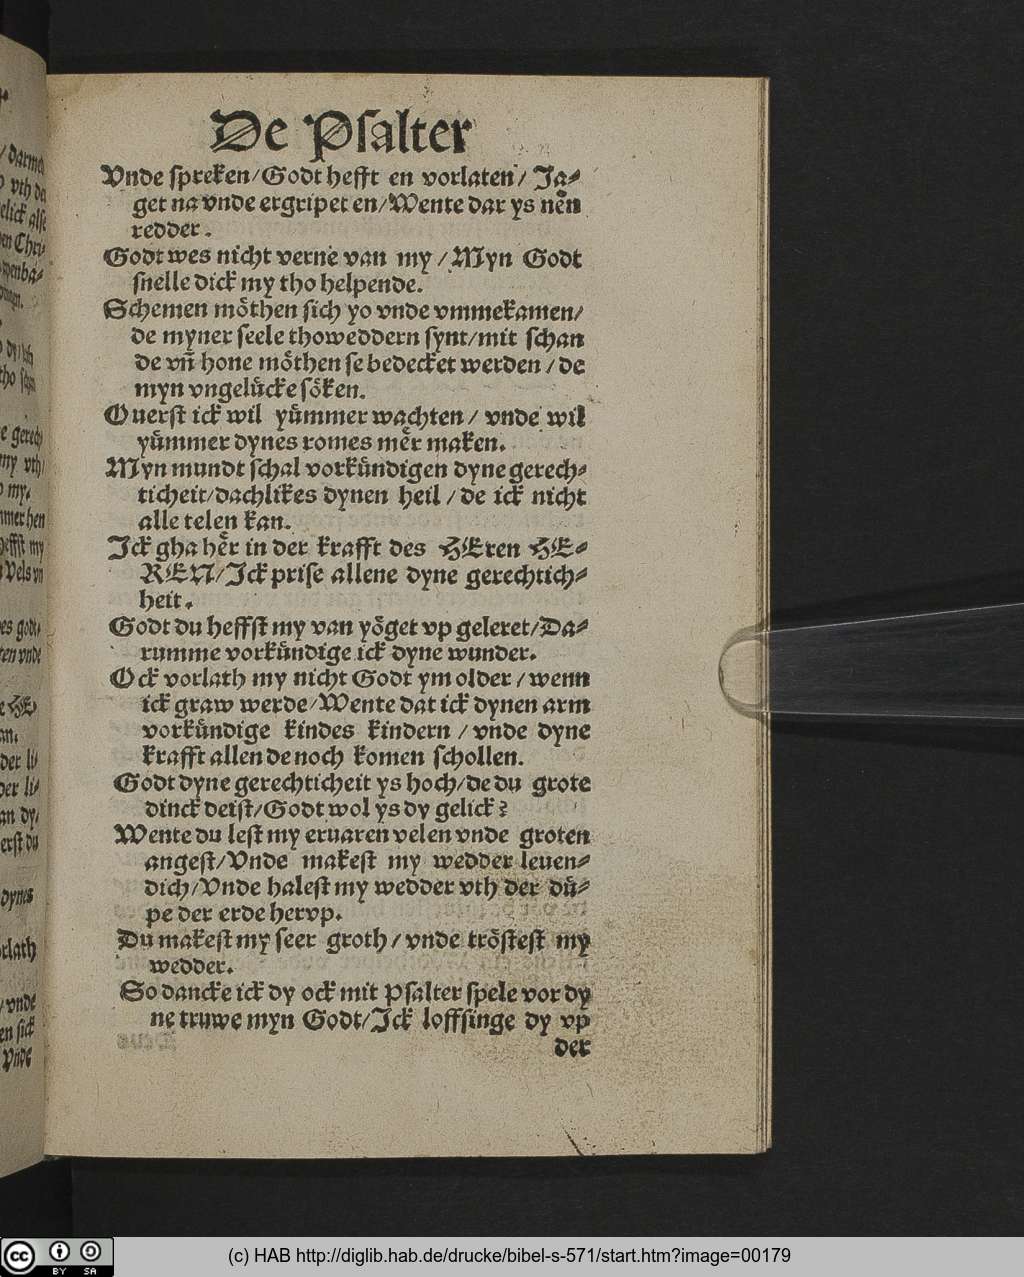 De Psalter
Vnde spreken/Godt hefft en vorlaten/ Ja⸗
get na vnde ergripet en/Wente dar ys nên
redder.
Godt wes nicht verne van my /Myn Godt
snelle dick my tho helpende.
Schemen mo̊then sich yo vnde vmmekamen/
de myner seele thoweddern synt/mit schan
de vn̄ hone mo̊then se bedecket werden /de
myn vngelu̇cke so̊ken.
Ouerst ick wil yu̇mmer wachten/ vnde wil
yu̇mmer dynes romes mêr maken.
Myn mundt schal vorku̇ndigen dyne gerech⸗
ticheit/dachlikes dynen heil /de ick nicht
alle telen kan.
Ick gha hêr in der krafft des HEren HE⸗
REN/Ick prise allene dyne gerechtich⸗
heit.
Godt du heffst my van yo̊get vp geleret/Da⸗
rumme vorku̇ndige ick dyne wunder.
Ock vorlath my nicht Godt ym older /wenn
ick graw werde/Wente dat ick dynen arm
vorku̇ndige kindes kindern /vnde dyne
krafft allen de noch komen schollen.
Godt dyne gerechticheit ys hoch/de du grote
dinck deist/Godt wol ys dy gelick?
Wente du lest my eruaren velen vnde groten
angest/Vnde makest my wedder leuen⸗
dich/Vnde halest my wedder vth der du̇⸗
pe der erde hervp.
Du makest my seer groth/vnde tro̊stest my
wedder.
So dancke ick dy ock mit Psalter spele vor dy
ne truwe myn Godt/Ick loffsinge dy vp
der
(c) HAB http://diglib.hab.de/drucke/bibel-s-571/start.htm?image=00179
cc BY SA